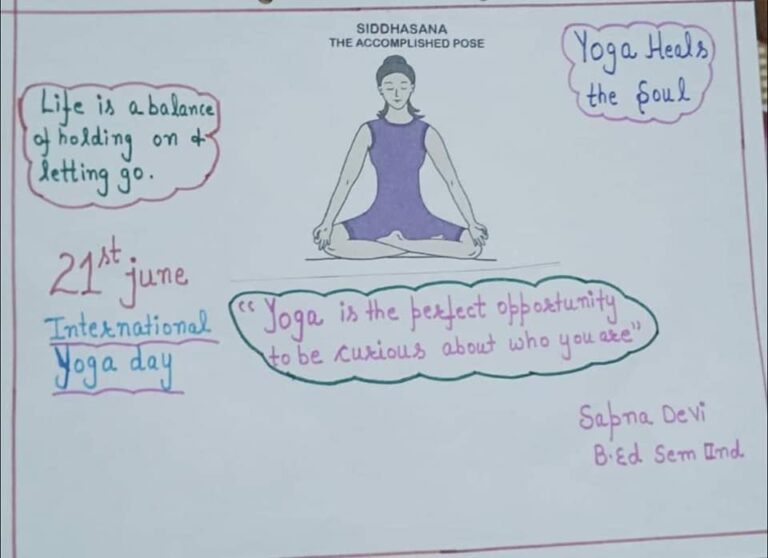 SIDDHASANA
THE ACCOMPLISHED POSE
Yoga Heals
the Soul
Life is a balance
of holding on &
letting go.
21st june
International
Yoga day
"Yoga is the perfect opportunity
to be curious about who you are"
Sapna Devi
B.Ed Sem IInd